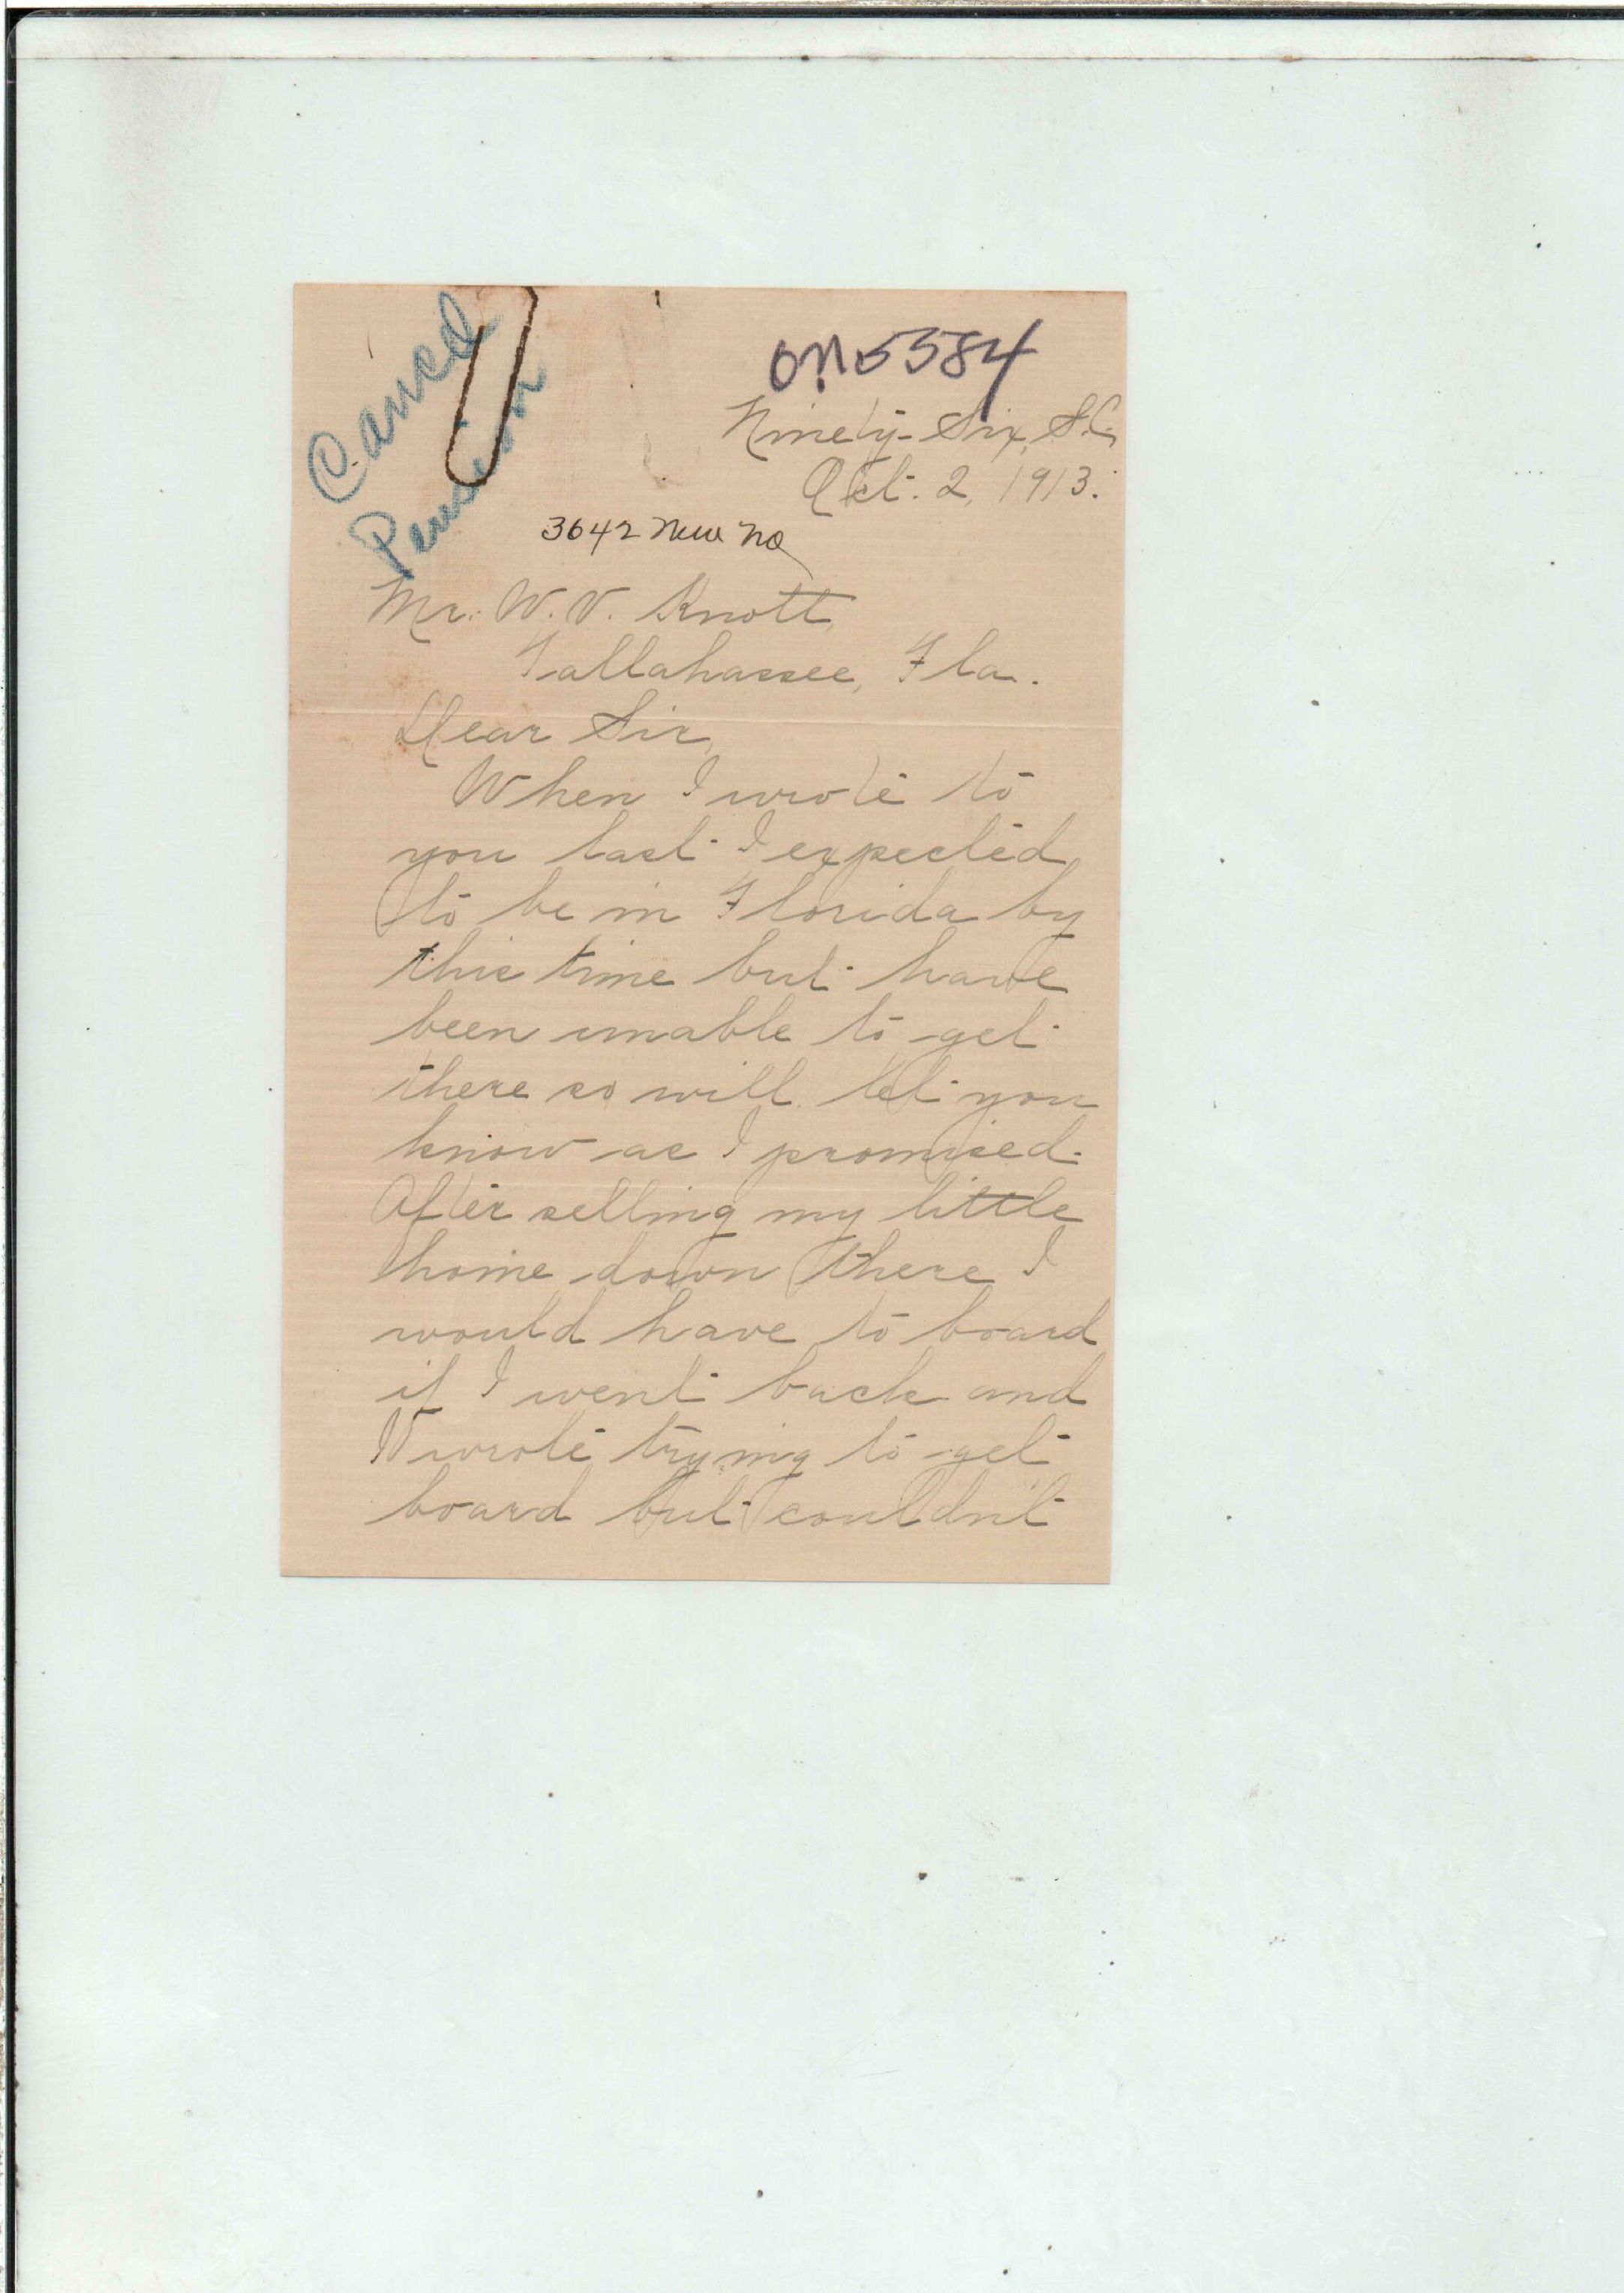 Canced
Pension
ON 5584
Ninety-Six, S.C.,
Oct. 2, 1913.
3642 New No
Mr. W. V. Knott,
Tallahassee, Fla.
Dear Sir,
When I wrote to
you last I expected
to be in Florida by
this time but have
been unable to get
there so will let you
know as I promised.
After selling my little
home down there I
would have to board
if I went back and
I wrote trying to get
board but couldn't